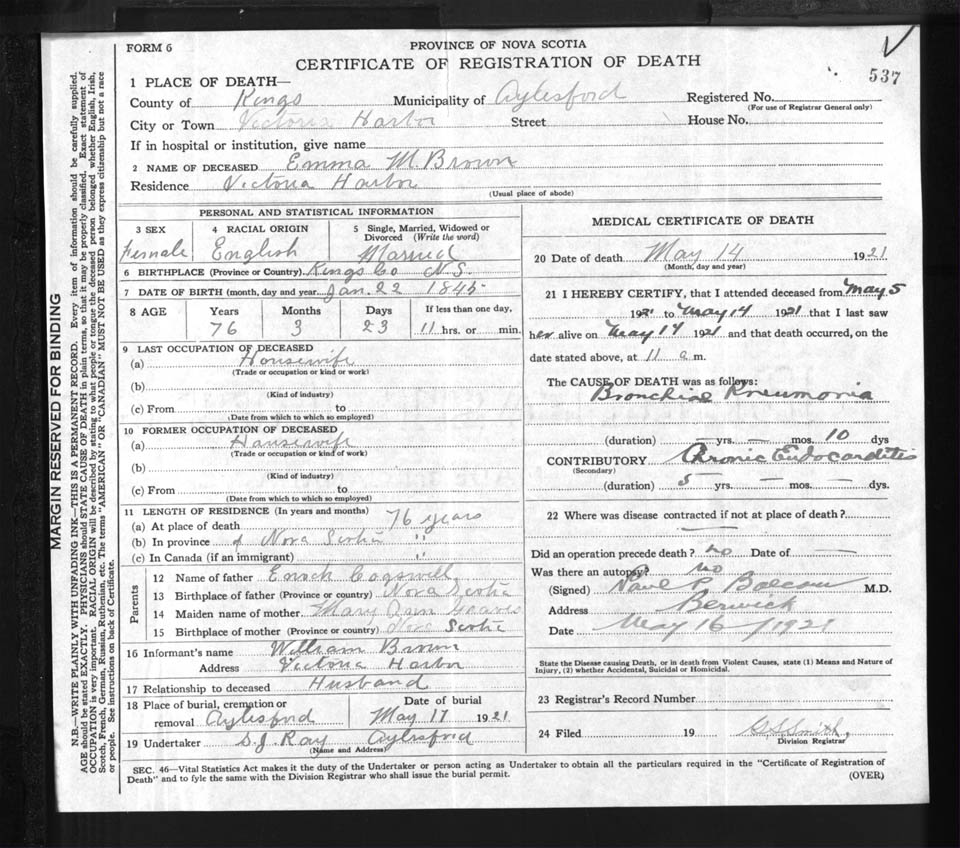 FORM 6
PROVINCE OF NOVA SCOTIA
CERTIFICATE OF REGISTRATION OF DEATH
537
1 PLACE OF DEATH—
County of Kings Municipality of Aylesford Registered No.
(For use of Registrar General only)
City or Town Victoria Harbor Street House No.
If in hospital or institution, give name
2 NAME OF DECEASED Emma M. Brown
Residence Victoria Harbor
(Usual place of abode)
PERSONAL AND STATISTICAL INFORMATION
3 SEX 4 RACIAL ORIGIN 5 Single, Married, Widowed or Divorced (Write the word)
Female English Married
6 BIRTHPLACE (Province or Country) Kings Co N.S.
7 DATE OF BIRTH (month, day and year) Jan. 22 1845
8 AGE Years Months Days If less than one day,
76 3 23 11 hrs. or min.
9 LAST OCCUPATION OF DECEASED
(a) Housewife
(Trade or occupation or kind or work)
(b)
(Kind of industry)
(c) From to
(Date from which to which so employed)
10 FORMER OCCUPATION OF DECEASED
(a) Housewife
(Trade or occupation or kind of work)
(b)
(Kind of industry)
(c) From to
(Date from which to which so employed)
11 LENGTH OF RESIDENCE (In years and months)
(a) At place of death 76 years
(b) In province of Nova Scotia "
(c) In Canada (if an immigrant) "
Parents
12 Name of father Enoch Cogswell
13 Birthplace of father (Province or country) Nova Scotia
14 Maiden name of mother Mary Ann Graves
15 Birthplace of mother (Province or country) Nova Scotia
16 Informant's name William Brown
Address Victoria Harbor
17 Relationship to deceased Husband
18 Place of burial, cremation or removal Aylesford Date of burial May 17 1921
19 Undertaker S.J. Ray Aylesford
(Name and Address)
MEDICAL CERTIFICATE OF DEATH
20 Date of death May 14 1921
(Month, day and year)
21 I HEREBY CERTIFY, that I attended deceased from May 5
1921 to May 14 1921 that I last saw
her alive on May 14 1921 and that death occurred, on the
date stated above, at 11 a m.
The CAUSE OF DEATH was as follows:
Bronchial Pneumonia
(duration) — yrs. — mos. 10 dys
CONTRIBUTORY Chronic Endocarditis
(Secondary)
(duration) 5 yrs. — mos. — dys.
22 Where was disease contracted if not at place of death?
Did an operation precede death? no Date of —
Was there an autopsy? no
(Signed) P. Balcom M.D.
Address Berwick
Date May 16/1921
State the Disease causing Death, or in death from Violent Causes, state (1) Means and Nature of
Injury, (2) whether Accidental, Suicidal or Homicidal.
23 Registrar's Record Number
24 Filed 19 Smith,
Division Registrar
SEC. 46—Vital Statistics Act makes it the duty of the Undertaker or person acting as Undertaker to obtain all the particulars required in the "Certificate of Registration of
Death" and to fyle the same with the Division Registrar who shall issue the burial permit. (OVER)
MARGIN RESERVED FOR BINDING
N.B.—WRITE PLAINLY WITH UNFADING INK—THIS IS A PERMANENT RECORD. Every item of information should be carefully supplied.
AGE should be stated EXACTLY. PHYSICIANS should STATE CAUSE OF DEATH in plain terms, so that it may be properly classified. Exact statement of
OCCUPATION is very important. RACIAL ORIGIN will be described by stating to what people or tongue the deceased person belonged whether English, Irish,
Scotch, French, German, Russian, Ruthenian, etc. The terms "AMERICAN" OR "CANADIAN" MUST NOT BE USED as they express citizenship but not a race
or people. See instructions on back of Certificate.